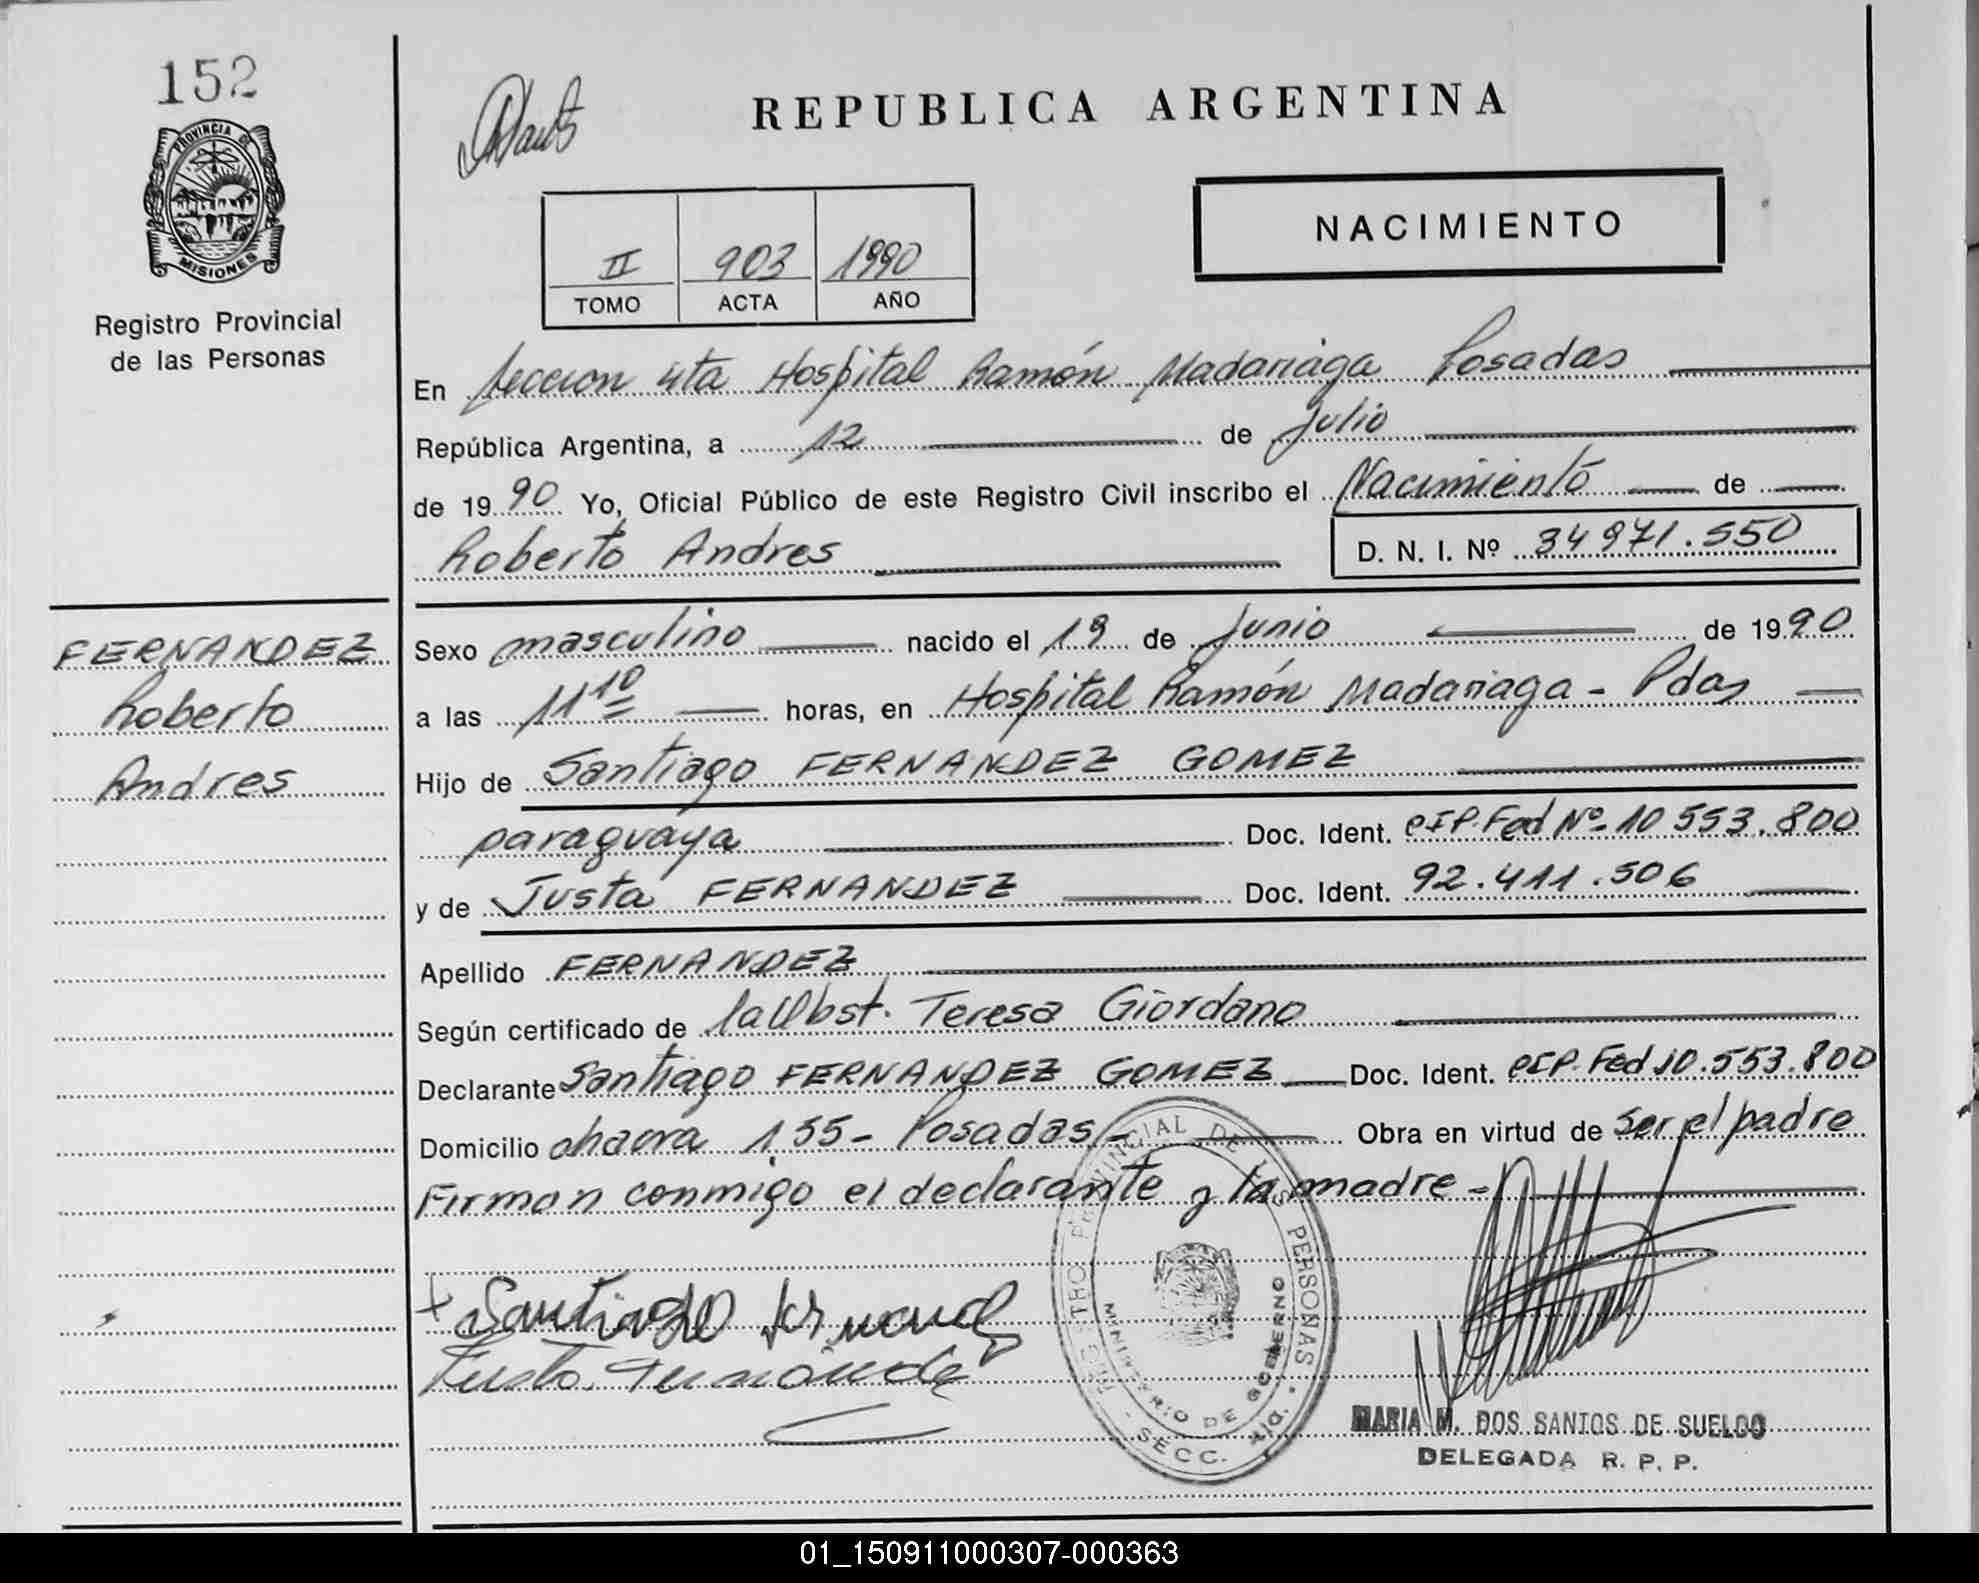 152
REPUBLICA ARGENTINA
PROVINCIA DE
MISIONES
NACIMIENTO
II 903 1990
TOMO ACTA AÑO
Registro Provincial
de las Personas
En Seccion 4ta Hospital Ramón Madariaga Posadas
República Argentina, a 12 de Julio
de 1990 Yo, Oficial Público de este Registro Civil inscribo el Nacimiento de
Roberto Andres D. N. I. Nº 34971.550
FERNANDEZ
Roberto
Andres
Sexo masculino nacido el 19 de Junio de 1990
a las 11 10 horas, en Hospital Ramón Madariaga - Pdas
Hijo de Santiago FERNANDEZ GOMEZ
paraguaya Doc. Ident. CIP. Fed Nº 10 553.800
y de Justa FERNANDEZ Doc. Ident. 92.411.506
Apellido FERNANDEZ
Según certificado de la Obst. Teresa Giordano
Declarante Santiago FERNANDEZ GOMEZ Doc. Ident. CIP. Fed 10.553.800
Domicilio 155 - Posadas - Obra en virtud de ser el padre
Firman conmigo el declarante y la madre -
+ Santiago Fernandez
Justa Fernández
REGISTRO PROVINCIAL DE LAS PERSONAS
MINISTERIO DE GOBIERNO
SECC. 4ta.
MARIA M. DOS SANTOS DE SUELDO
DELEGADA R. P. P.
01_150911000307-000363